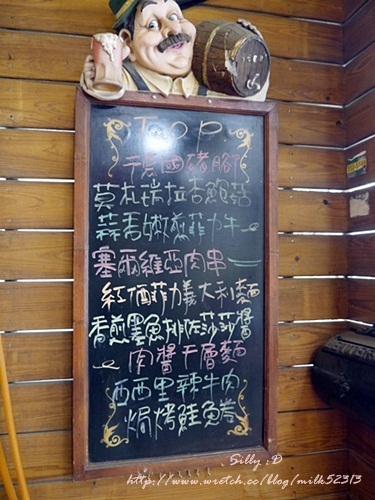 T.o.p.
德國豬腳
莫札瑞拉杏鮑菇
蒜香嫩煎菲力牛
塞爾維亞肉串
紅酒菲力義大利麵
香煎墨魚排佐莎莎醬
肉醬千層麵
西西里辣牛肉
焗烤鮭魚捲
Silly :D
http://www.wretch.cc/blog/milk52313